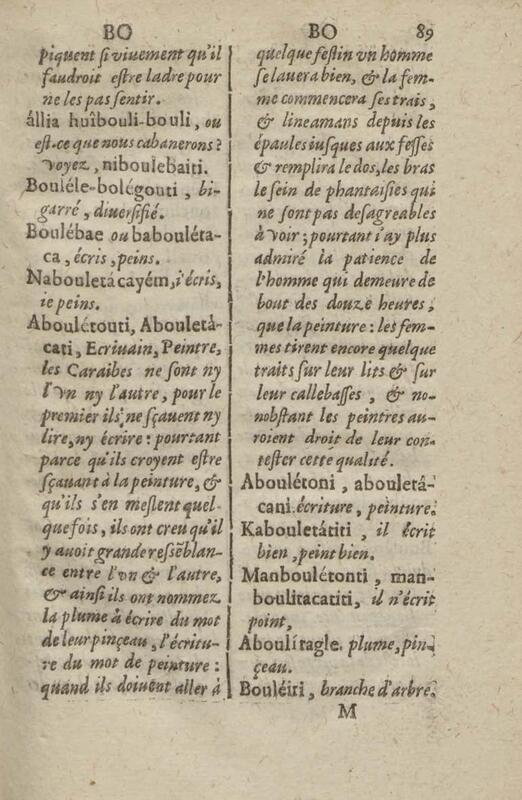 BO
piquent si viuement qu'il
faudroit estre ladre pour
ne les pas sentir.
állia huîbouli-bouli, ou
est-ce que nous cabanerons?
voyez, niboulebaiti.
Bouléle-bolégouti, bi-
garré, diuersifié.
Boulébae ou babouléta-
ca, écris, peins.
Nabouletácayém, i'écris,
ie peins.
Aboulétouti, Abouletá-
cati, Ecriuain, Peintre,
les Caraibes ne sont ny
l'vn ny l'autre, pour le
premier ils ne sçauent ny
lire, ny écrire: pourtant
parce qu'ils croyent estre
sçauant à la peinture, &
qu'ils s'en meslent quel-
quefois, ils ont creu qu'il
y auoit grande ressẽblan-
ce entre l'vn & l'autre,
& ainsi ils ont nommez
la plume à écrire du mot
de leur pinçeau, l'écritu-
re du mot de peinture:
quand ils doiuent aller à
BO 89
quelque festin vn homme
se lauera bien, & la fem-
me commencera ses trais,
& lineamans depuis les
épaules iusques aux fesses
& remplira le dos, les bras
le sein de phantaisies qui
ne sont pas desagreables
à voir; pourtant i'ay plus
admiré la patience de
l'homme qui demeure de
bout des douze heures,
que la peinture: les fem-
mes tirent encore quelque
traits sur leur lits & sur
leur callebasses, & no-
nobstant les peintres au-
roient droit de leur con-
tester cette qualité.
Aboulétoni, abouletá-
cani. écriture, peinture.
Kabouletátiti, il écrit
bien, peint bien.
Manboulétonti, man-
boulitacatiti, il n'écrit
point,
Aboulítagle. plume, pin-
çeau.
Bouléiti, branche d'arbre.
M